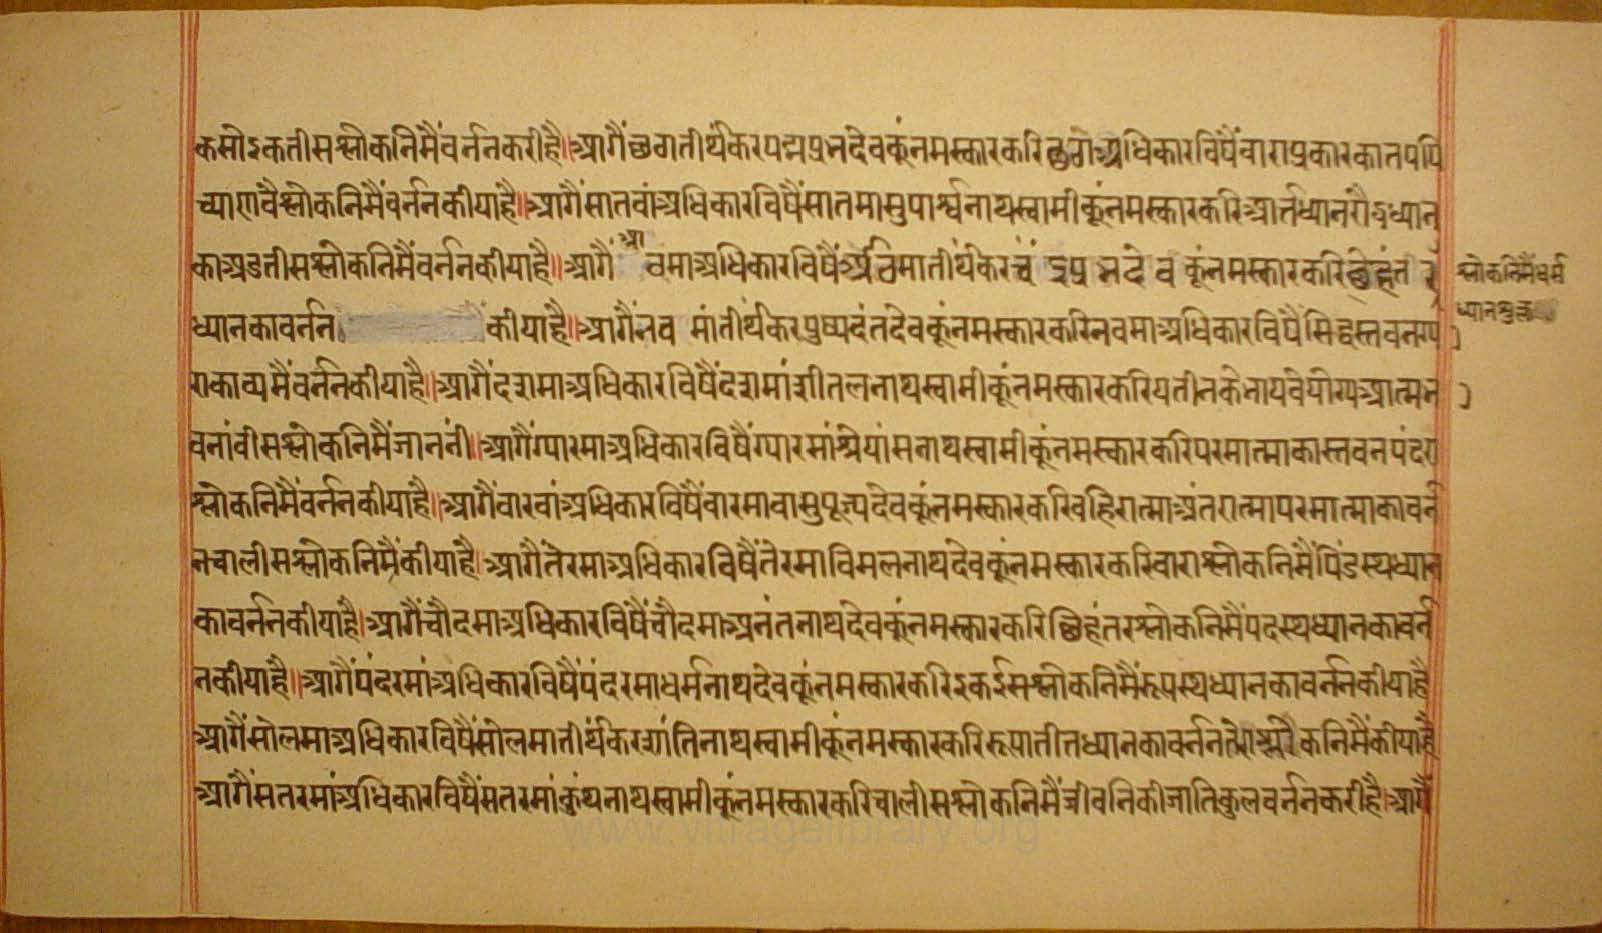 कसोइकतीसश्लोकनिमैंवर्ननकरीहै॥आगैंछठातीर्थंकरपद्मप्रभदेवकूंनमस्कारकरिछठोअधिकारविषैंबाराप्रकारकातपपि
च्याणवैश्लोकनिमैंवर्ननकीयाहै॥आगैंसातवांअधिकारविषैंसातमासुपार्श्वनाथस्वामीकूंनमस्कारकरिआर्तध्यानरौद्रध्यान
काअडतीसश्लोकनिमैंवर्ननकीयाहै॥आगैंआठवमाअधिकारविषैंआठमातीर्थंकरचंद्रप्रभदेवकूंनमस्कारकरि
श्लोकनिमैंधर्म
ध्यानकावर्ननकीयाहै॥आगैंनवमांतीर्थंकरपुष्पदंतदेवकूंनमस्कारकरिनवमाअधिकारविषैंसिद्धस्तवनग्या
ध्यानशुक्ल
राकाव्यमैंवर्ननकीयाहै॥आगैंदशमाअधिकारविषैंदशमांशीतलनाथस्वामीकूंनमस्कारकरियतीनकेभायवेयोग्यआत्मभा
वनांवीसश्लोकनिमैंजाननी॥आगैंग्यारमाअधिकारविषैंग्यारमांश्रेयांसनाथस्वामीकूंनमस्कारकरिपरमात्माकास्तवनपंदरा
श्लोकनिमैंवर्ननकीयाहै॥आगैंबारवांअधिकारविषैंबारमावासुपूज्यदेवकूंनमस्कारकरिबहिरात्माअंतरात्मापरमात्माकावर्न
नचालीसश्लोकनिमैंकीयाहै॥आगैंतेरमाअधिकारविषैंतेरमाविमलनाथदेवकूंनमस्कारकरिबाराश्लोकनिमैंपिंडस्थध्यान
कावर्ननकीयाहै॥आगैंचौदमाअधिकारविषैंचौदमाअनंतनाथदेवकूंनमस्कारकरिछिहंतरश्लोकनिमैंपदस्थध्यानकावर्न
नकीयाहै॥आगैंपंदरमांअधिकारविषैंपंदरमाधर्मनाथदेवकूंनमस्कारकरिइकईसश्लोकनिमैंरूपस्थध्यानकावर्ननकीयाहै
आगैंसोलमाअधिकारविषैंसोलमातीर्थंकरशांतिनाथस्वामीकूंनमस्कारकरिरूपातीतध्यानकावर्ननतेराश्लोकनिमैंकीयाहै
आगैंसतरमांअधिकारविषैंसतरमांकुंथनाथस्वामीकूंनमस्कारकरिचालीसश्लोकनिमैंजीवनिकीजातिकुलवर्ननकरीहै॥आगैं
www.vitragelibrary.org